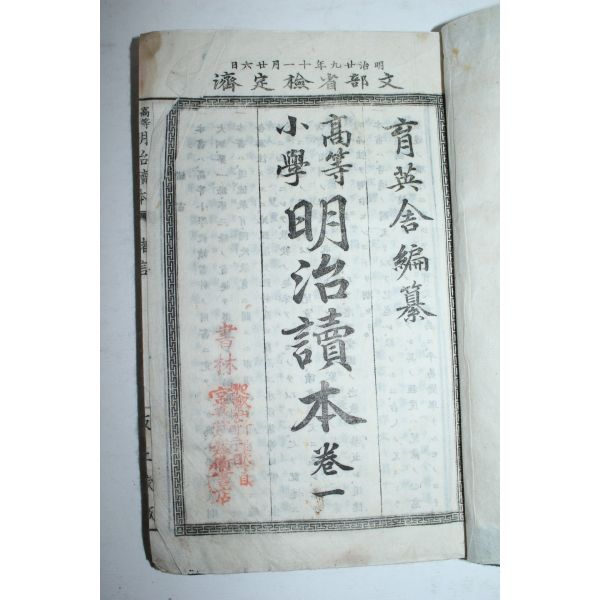 明治廿九年十一月廿六日
文部省檢定濟
育英舍編纂
高等
小學
明治讀本卷一
書林
高等明治讀本
緒言